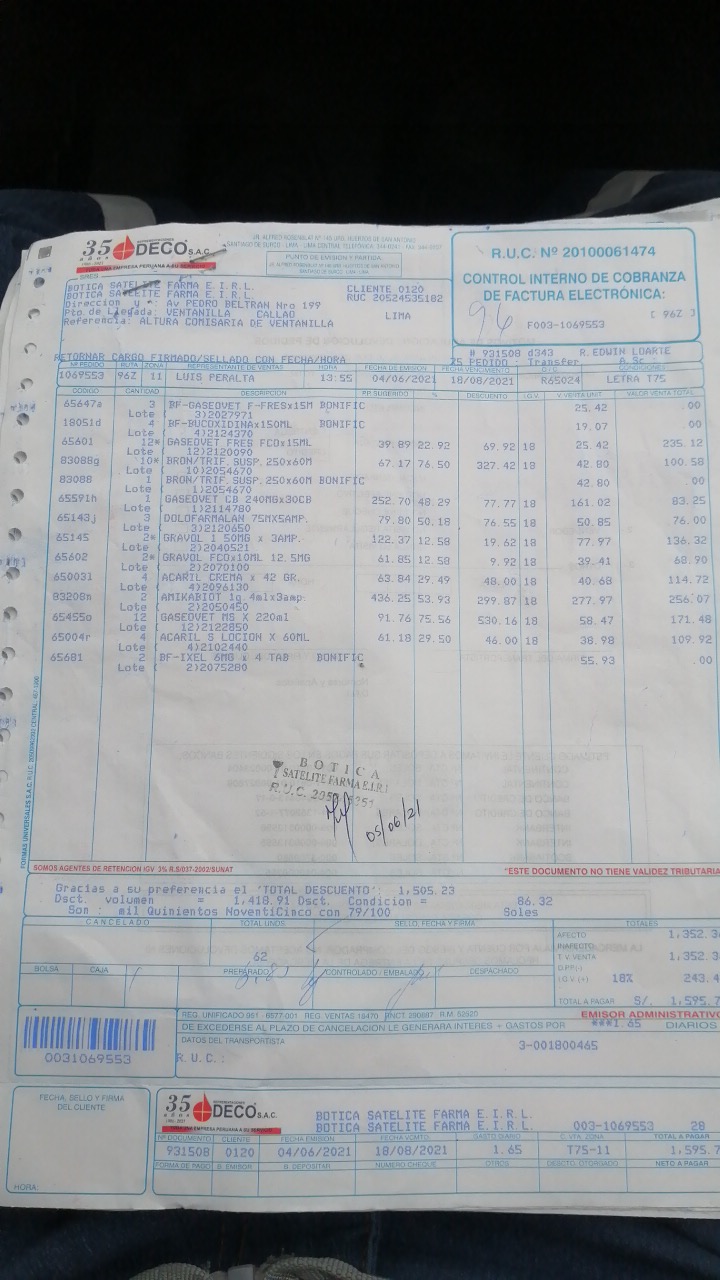 35 años
REPRESENTACIONES
DECO S.A.C.
UNA EMPRESA PERUANA A SU SERVICIO
JR. ALFREDO ROSENBLAT Nº 145 URB. HUERTOS DE SAN ANTONIO
SANTIAGO DE SURCO - LIMA - LIMA CENTRAL TELEFÓNICA:
PUNTO DE EMISIÓN Y PARTIDA
R.U.C. Nº 20100061474
CONTROL INTERNO DE COBRANZA
DE FACTURA ELECTRÓNICA:
96
F003-1069553 [ 96Z ]
BOTICA SATELITE FARMA E.I.R.L. CLIENTE 0120
BOTICA SATELITE FARMA E.I.R.L. RUC 20524535182
Direccion y *: Av PEDRO BELTRAN Nro 199
Pto de Llegada: VENTANILLA CALLAO LIMA
Referencia: ALTURA COMISARIA DE VENTANILLA
# 931508 d343 R.EDWIN LOARTE
RETORNAR CARGO FIRMADO/SELLADO CON FECHA/HORA
25 PEDIDO : Transfer. A.Sr :
Nº PEDIDO RUTA ZONA REPRESENTANTE DE VENTAS HORA FECHA DE EMISIÓN FECHA VENCIMIENTO O/C CONDICIONES
1069553 96Z 11 LUIS PERALTA 13:55 04/06/2021 18/08/2021 R65024 LETRA T75
CODIGO CANTIDAD DESCRIPCION PR.SUGERIDO % DESCUENTO I.G.V. V.VENTA UNIT. VALOR VENTA TOTAL
65647a 3 BF-GASEOVET F-FRESx15M BONIFIC 25.42 .00
Lote ( 3)2027971
18051d 4 BF-BUCOXIDINAx150ML BONIFIC 19.07 .00
Lote ( 4)2124370
65601 12* GASEOVET FRES FCOx15ML 39.89 22.92 69.92 18 25.42 235.12
Lote ( 12)2120090
83088g 10* BRON/TRIF. SUSP. 250x60M 67.17 76.50 327.42 18 42.80 100.58
Lote ( 10)2054670
83088 1 BRON/TRIF. SUSP. 250x60M BONIFIC 42.80 .00
Lote ( 1)2054670
65591h 1 GASEOVET CB 240MGx30CB 252.70 48.29 77.77 18 161.02 83.25
Lote ( 1)2114780
65143j 3 DOLOFARMALAN 75MX5AMP. 79.80 50.18 76.55 18 50.85 76.00
Lote ( 3)2120650
65145 2* GRAVOL 1 50MG x 3AMP. 122.37 12.58 19.62 18 77.97 136.32
Lote ( 2)2040521
65602 2* GRAVOL FCOx10ML 12.5MG 61.85 12.58 9.92 18 39.41 68.90
Lote ( 2)2070100
650031 4 ACARIL CREMA x 42 GR. 63.84 29.49 48.00 18 40.68 114.72
Lote ( 4)2096130
83208n 2 AMIKABIOT 1g.4mlx3amp. 436.25 53.93 299.87 18 277.97 256.07
Lote ( 2)2050450
65455o 12 GASEOVET MS X 220ml 91.76 75.56 530.16 18 58.47 171.48
Lote ( 12)2122850
65004r 4 ACARIL S LOCION X 60ML 61.18 29.50 46.00 18 38.98 109.92
Lote ( 4)2102440
65681 2 BF-IXEL 6MG x 4 TAB BONIFIC 55.93 .00
Lote ( 2)2075280
BOTICA
SATELITE FARMA E.I.R.L
R.U.C.
05/06/21
SOMOS AGENTES DE RETENCION IGV 3% R.S/037-2002/SUNAT
"ESTE DOCUMENTO NO TIENE VALIDEZ TRIBUTARIA
Gracias a su preferencia el 'TOTAL DESCUENTO': 1,505.23
Dsct. volumen = 1,418.91 Dsct. Condicion = 86.32
Son : mil Quinientos NoventiCinco con 79/100 Soles
CANCELADO TOTAL UNDS SELLO, FECHA Y FIRMA TOTALES
62
AFECTO 1,352.3
INAFECTO
T.V.VENTA 1,352.3
D.P.P.(-)
I.G.V. (+) 18% 243.4
TOTAL A PAGAR S/. 1,595.7
BOLSA CAJA PREPARADO CONTROLADO / EMBALADO DESPACHADO
REG. UNIFICADO 951 - 6577-001 REG. VENTAS 18470 R.M. 52520
EMISOR ADMINISTRATIVO
DE EXCEDERSE AL PLAZO DE CANCELACION LE GENERARA INTERES + GASTOS POR ***1.65 DIARIOS
DATOS DEL TRANSPORTISTA
3-001800465
R.U.C.:
0031069553
FECHA, SELLO Y FIRMA
DEL CLIENTE
HORA:
35 años
REPRESENTACIONES
DECO S.A.C.
UNA EMPRESA PERUANA A SU SERVICIO
BOTICA SATELITE FARMA E.I.R.L. 003-1069553 28
BOTICA SATELITE FARMA E.I.R.L.
Nº DOCUMENTO CLIENTE FECHA EMISIÓN FECHA VCMTO. GASTO DIARIO C. VTA. ZONA TOTAL A PAGAR
931508 0120 04/06/2021 18/08/2021 1.65 T75-11 1,595.7
FORMA DE PAGO B. EMISOR B. DEPOSITAR NUMERO CHEQUE OTROS DESCTO. OTORGADO NETO A PAGAR